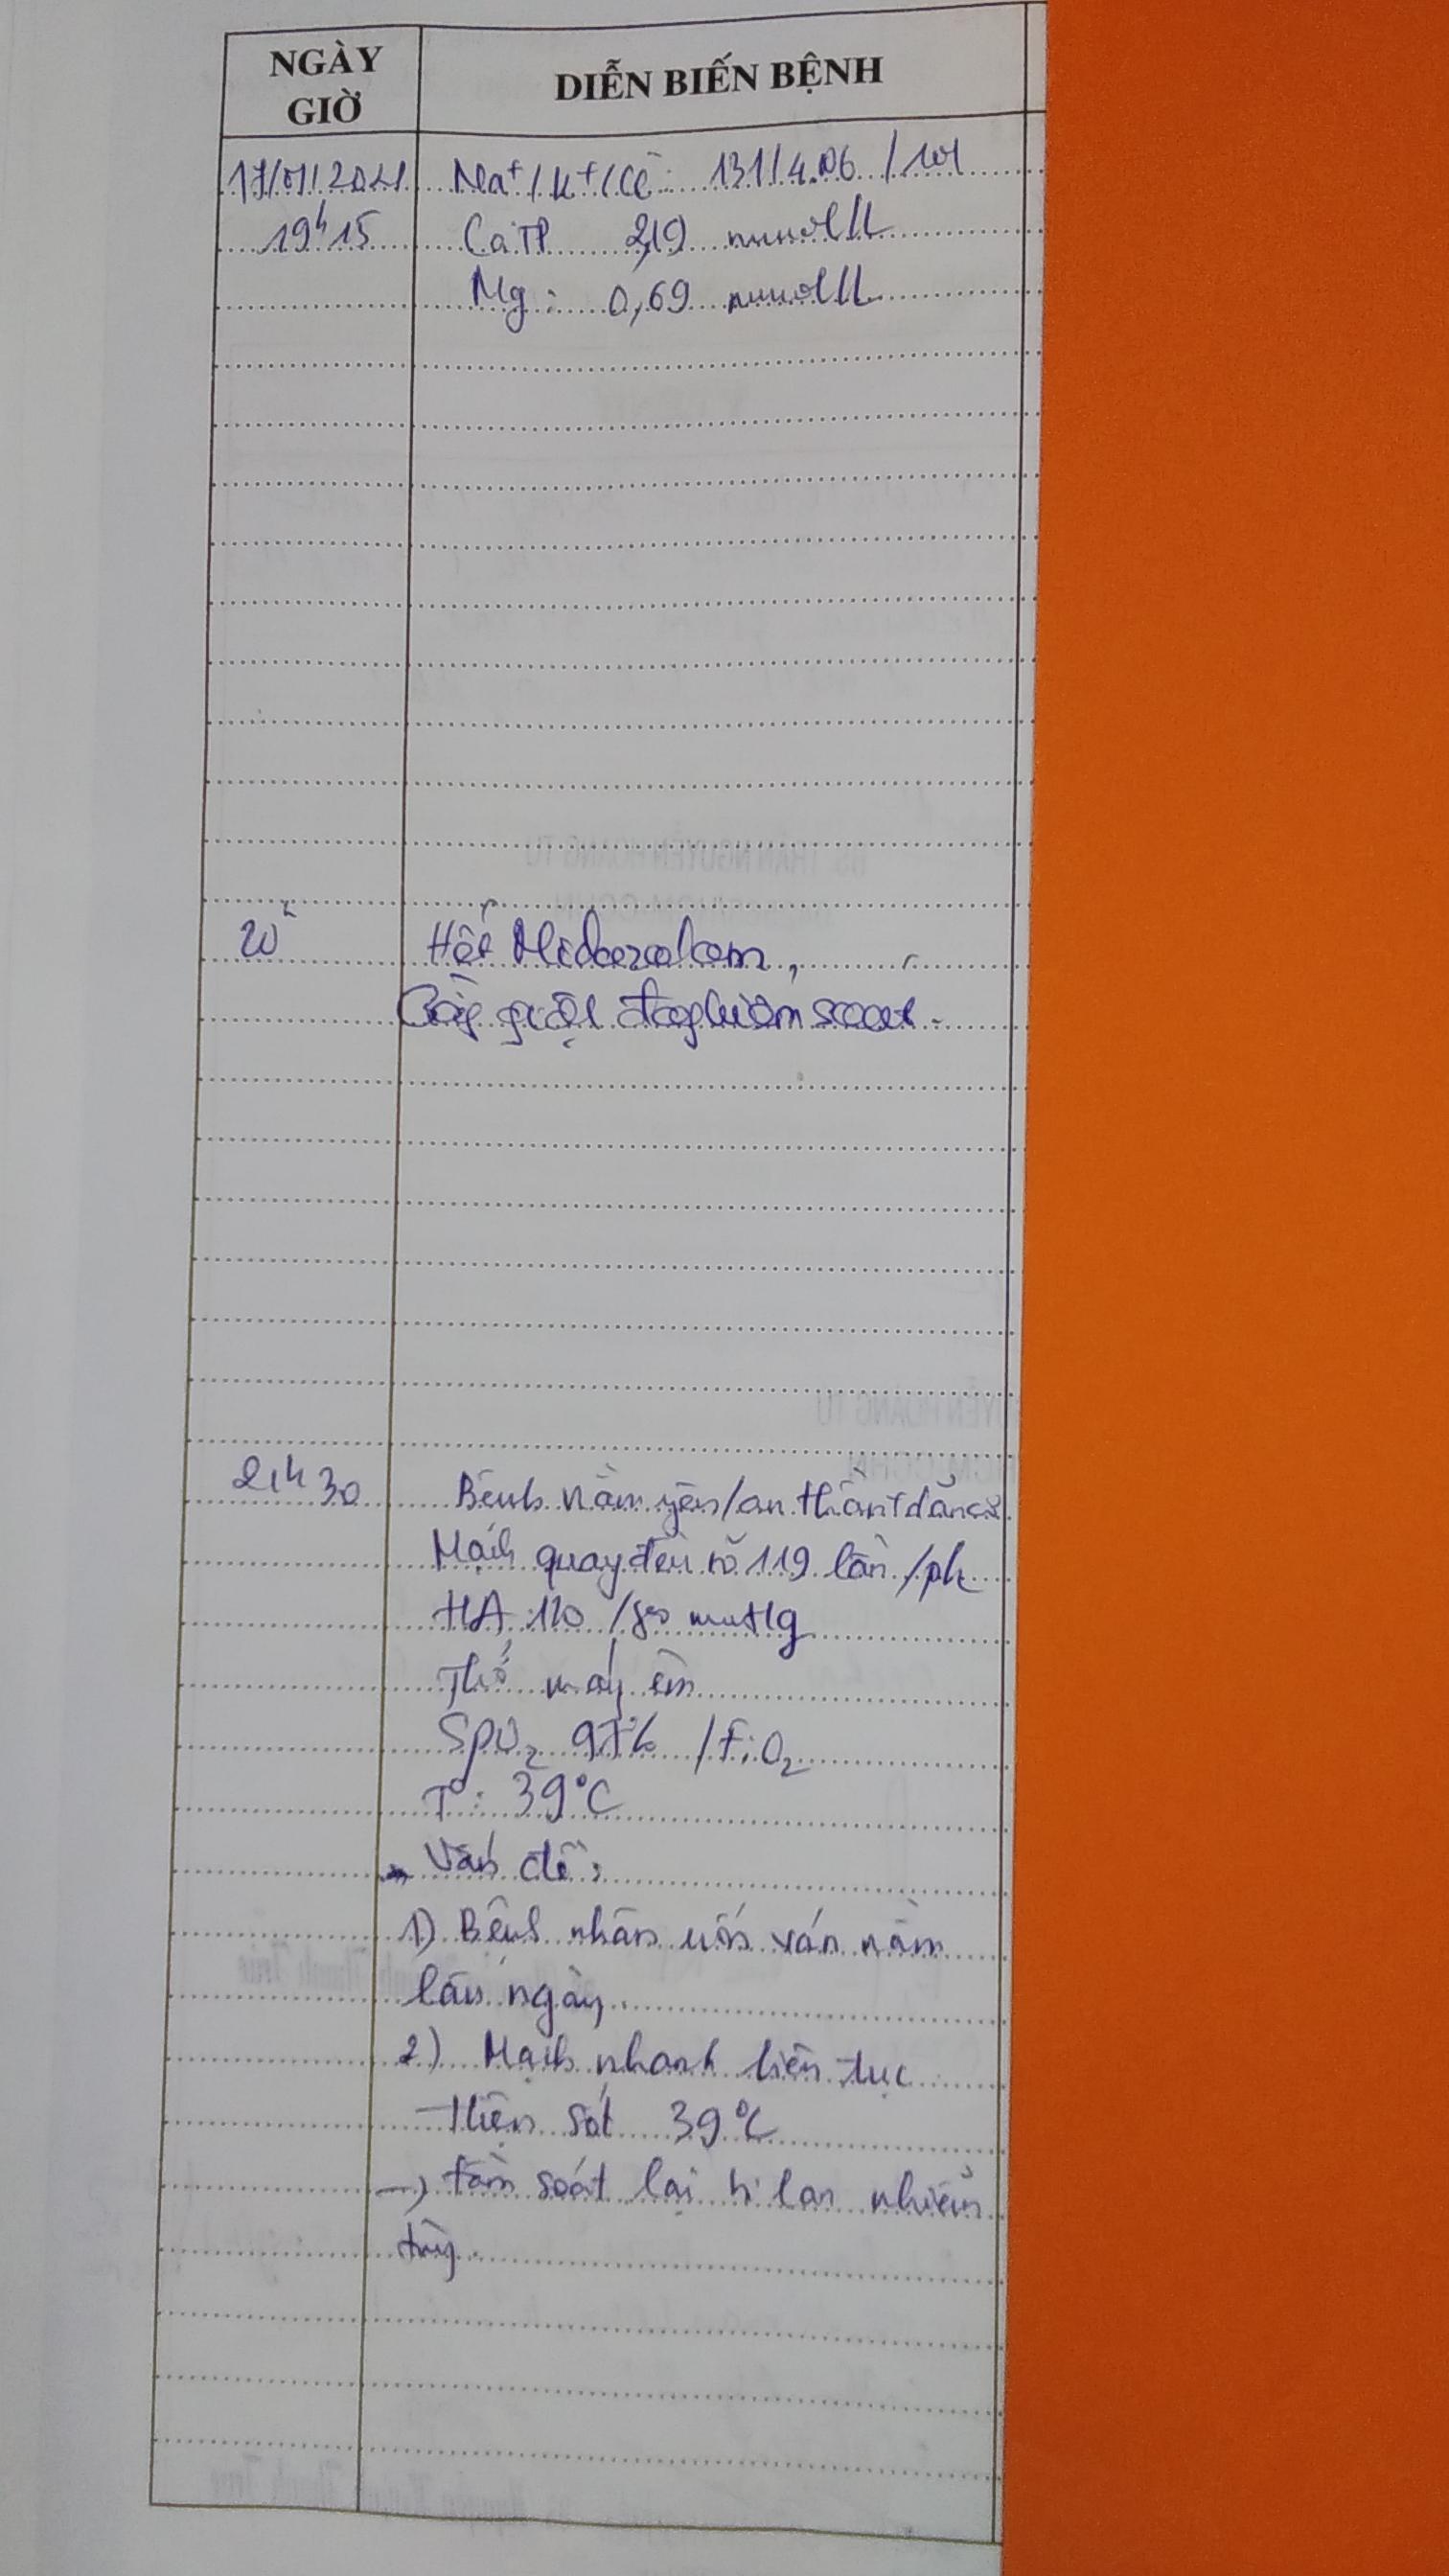 NGÀY GIỜ
DIỄN BIẾN BỆNH
Na⁺/K⁺/Cl⁻: 131/4.06/101
19h15 CaTP 2,19 mmol/L
Mg: 0,69 mmol/L
20h Hết Midazolam,
giật kiểm soát.
21h30 Bệnh nằm yên/an thần + dãn cơ
Mạch quay đều rõ 119 lần/ph
HA: 110/ mmHg
Thở máy êm
SpO₂ 97% /FiO₂
T°: 39°C
Vấn đề:
1) Bệnh nhân uốn ván nằm
lâu ngày.
2) Mạch nhanh liên tục
Hiện sốt 39°C
→ tầm soát lại nhiễm
trùng.